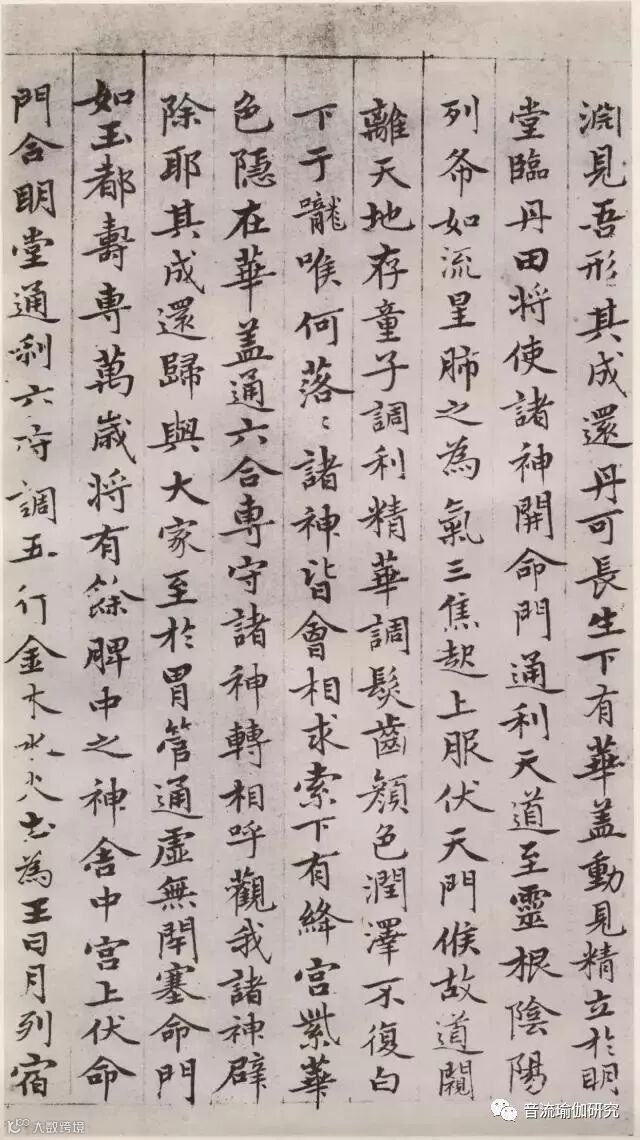 淵見吾形其成還丹可長生下有華盖動見精立於明
堂臨丹田將使諸神開命門通利天道至靈根陰陽
列布如流星肺之為氣三焦起上服伏天門候故道闚
離天地存童子調利精華調髮齒顔色潤澤不復白
下于嚨喉何落〻諸神皆會相求索下有絳宮紫華
色隱在華盖通六合專守諸神轉相呼觀我諸神辟
除耶其成還歸與大家至於胃管通虛無閉塞命門
如玉都壽專萬歲將有餘脾中之神舍中宮上伏命
門合明堂通利六府調五行金木水火土為王日月列宿
大数跨境
音流瑜伽研究